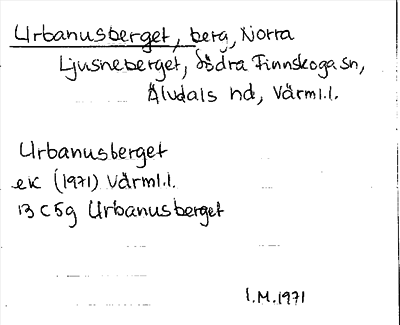 Urbanusberget, berg, Norra
Ljusneberget, Södra Finnskoga sn,
Älvdals hd, Värml.l.
Urbanusberget
ek (1971) Värml.l.
13 C 5g Urbanusberget
I.M. 1971